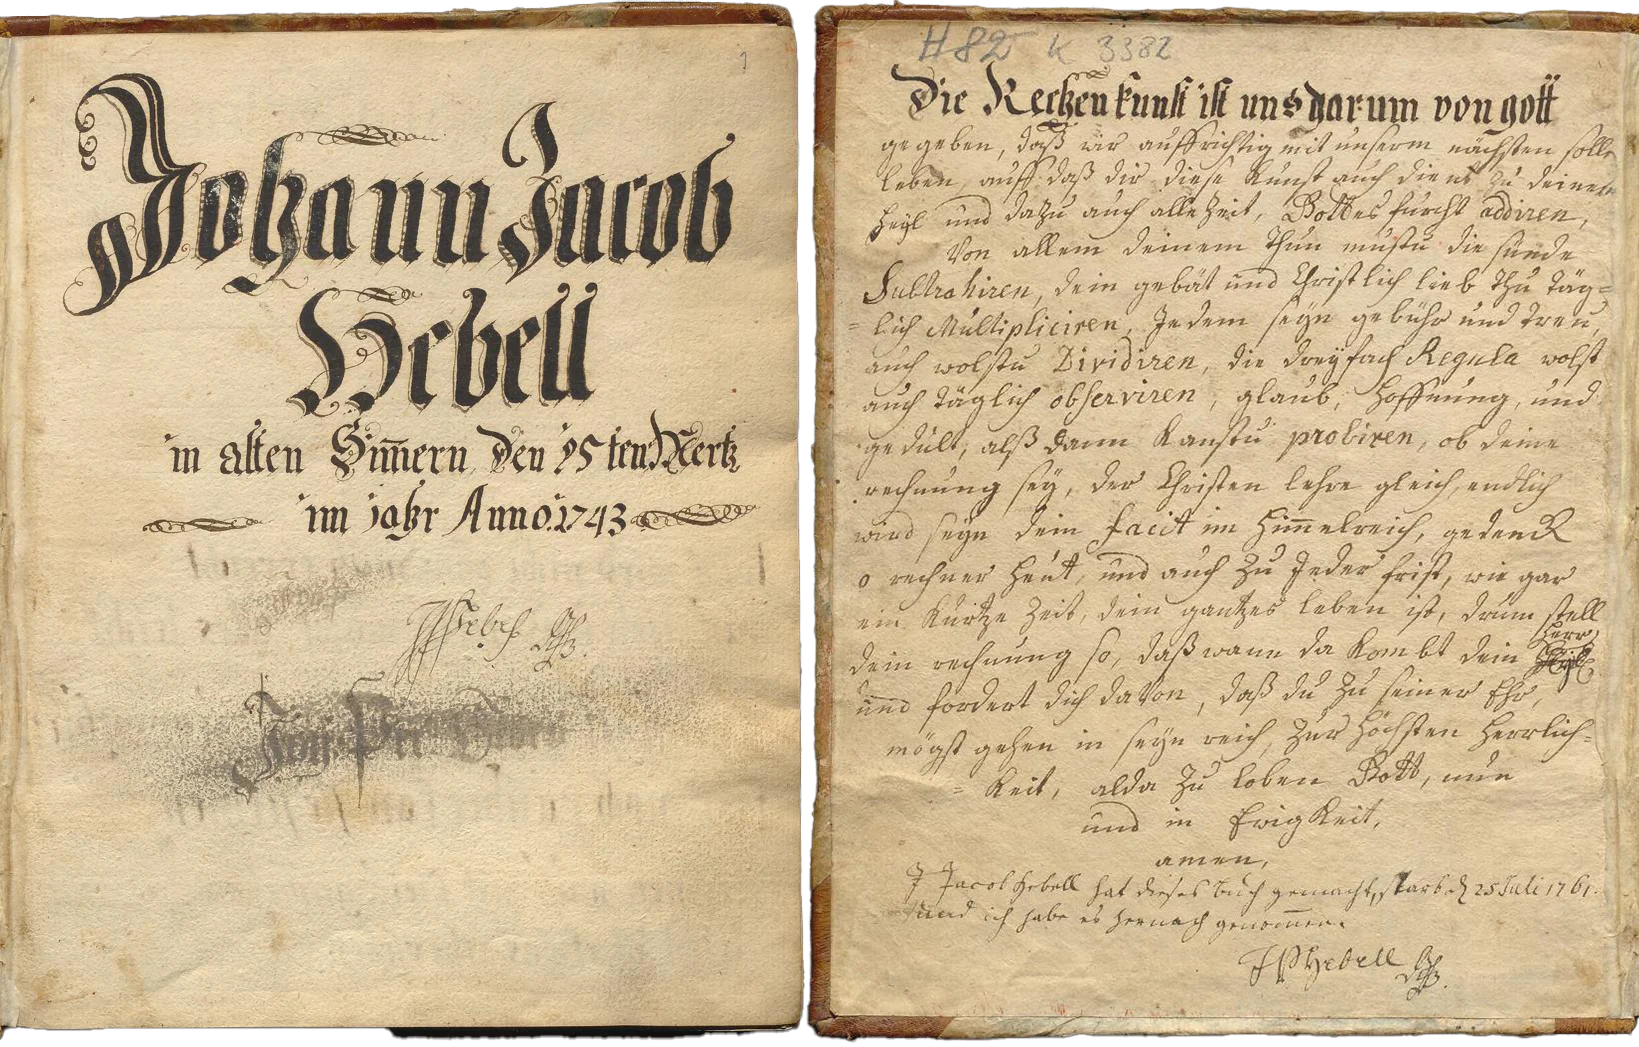 1
Johann Jacob
Hebell
in alten Sim̅ern, Den 25ten Mertz
im jahr Anno. 1743
H 82 K 3382
Die Rechenkunst ist uns darum von gott
gegeben, daß wir auffrichtig mit unserm nächsten solln
leben, auff daß dir diese Kunst auch diene zu deinem
Heyl und dazu auch alle Zeit, Gottes furcht addiren,
Von allem deinem Thun mustu die sünde
Subtrahiren, dein gebät und Christlich lieb thu Täg=
= lich Multipliciren, Jedem seyn gebühr und treu,
auch wolstu Dividiren, die dreyfach Regula wolst
auch täglich observiren, glaub, Hoffnung, und
gedult, alß dann Kanstu probiren, ob deine
rechnung sey, der Christen lehre gleich, endlich
wird seyn dein facit im Him̅elreich, gedenck
o rechner heut, und auch zu Jeder frist, wie gar
ein Kurtze Zeit, dein gantzes leben ist, drum stell
dein rechnung so, daß wann da Kombt dein Herr
und fordert dich davon, daß du zu seiner Ehr,
mögst gehen in seyn reich, zur höchsten Herrlich=
= Keit, alda zu loben Gott, nun
und in EwigKeit,
amen,
J Jacob Hebell hat dieses Buch gemacht, starb d 25 Juli 1761.
und ich habe es hernach genom̅en.
JP Hebell